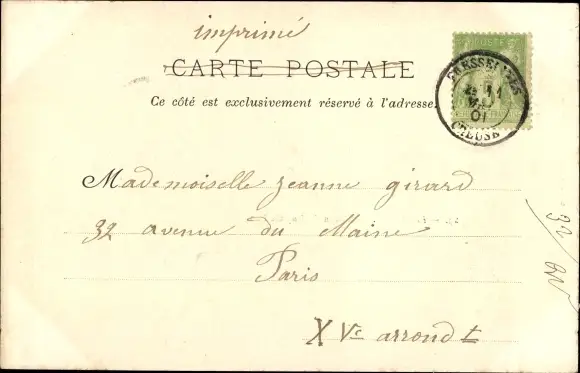 imprimé
CARTE POSTALE
Ce côté est exclusivement réservé à l'adresse.
POSTE
11
01
CREUSE
Mademoiselle Jeanne Girard
32 avenue du Maine
Paris
XVe arrondt
32